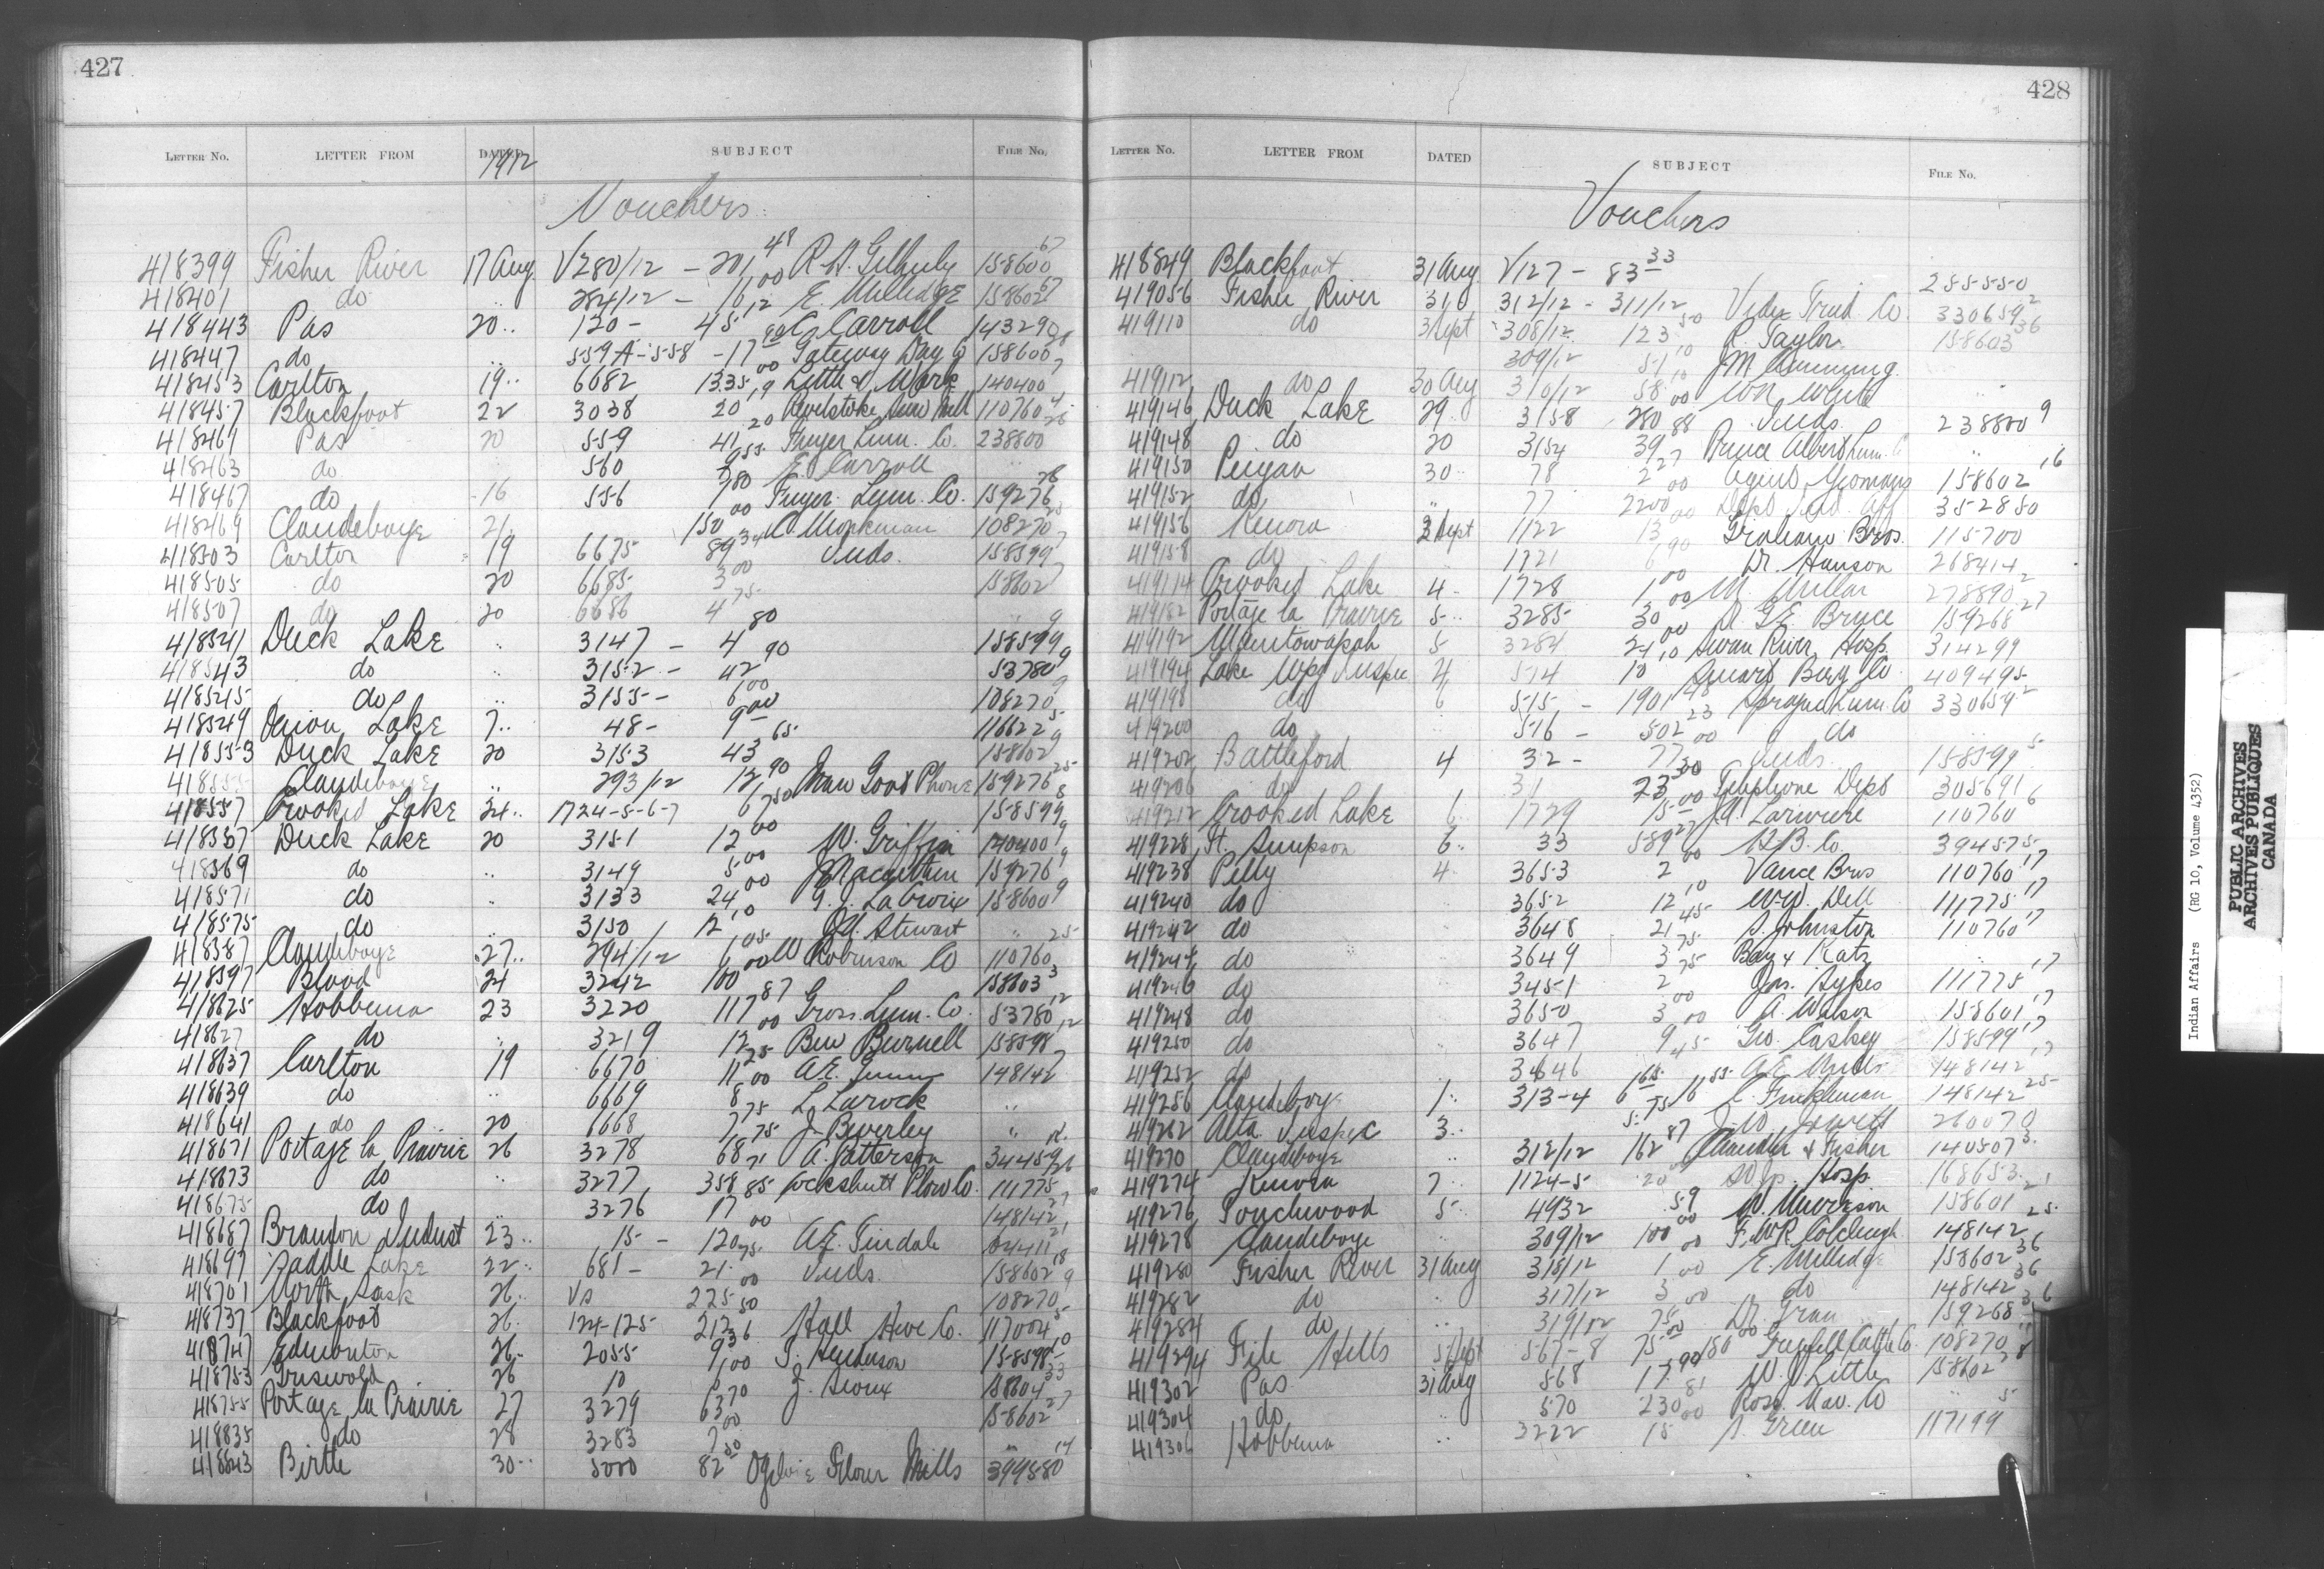 427
LETTER NO. LETTER FROM DATED 1912 SUBJECT FILE NO.
Vouchers
418399 Fisher River 17 Aug V280/12 - 201 48 158600 67
418401 do 284/12 - 16 00 E. Milledge 158602 67
418443 Pas 20 120 - 45 12 C. Carroll 143290
418447 do 559A-558 - 17 Gateway Drug Co 158600
418453 Carlton 19 6682 1335 00 Little & Mark 140400 7
418457 Blackfoot 22 3038 20 19 Revelstoke Saw Mill 110760 4
418461 Pas 20 559 41 20 Lum. Co. 238800 26
418463 do 560 E. Carroll
418467 do 16 556 7 80 Lum. Co. 159276 26
418469 Clandeboye 21 150 00 108270 25
418503 Carlton 19 6675 89 34 Inds. 158599 7
418505 do 20 6685 3 00 158602 7
418507 do 20 6686 4 75
418541 Duck Lake 3147 - 4 80 158599 9
418543 do 3152 - 42 90 53780 9
418545 do 3155 - 6 00 108270 9
418549 Onion Lake 7 48 - 9 00 116622 5
418553 Duck Lake 20 3153 43 65 158602 9
418555 Clandeboye 293/12 12 90 Man Govt Phone 159276 25
418557 Crooked Lake 24 1724-5-6-7 6 50 158599 6
418567 Duck Lake 20 3151 12 00 W. Griffin 140400 9
418569 do 3149 5 00 J Macarthur 159276 9
418571 do 3133 24 00 G. J. LaCroix 158600 9
418575 do 3150 12 10 Stewart
418587 Clandeboye 27 294/12 6 05 W Robinson Co 110760 25
418597 Blood 24 3242 100 00 158603 3
418625 Hobbema 23 3220 117 87 Gross Lum. Co. 53780 12
418627 do 3219 12 00 Ben Burnell 158598 12
418637 Carlton 19 6670 11 25 A.E. 148142 7
418639 do 6669 8 00 L. Larock
418641 do 20 6668 7 75 J. Beverley
418671 Portage la Prairie 26 3278 68 75 A. Patterson 34459
418673 do 3277 358 71 Cockshutt Plow Co. 111775 26
418675 do 3276 17 85 148142 27
418687 Brandon Indust 23 15 - 120 00 A.E. Tindale
418697 Saddle Lake 22 681 - 21 75 Inds. 158602 18
418701 North Sask 26 225 00 108270 9
418737 Blackfoot 26 124-125 212 50 Hall Co. 117004 5
418747 Edmonton 26 2055 9 36 J. Henderson 158598 10
418753 Griswold 26 10 J. Sioux 158604 33
418755 Portage la Prairie 27 3279 63 70 158602 27
418835 do 28 3283 7 00
418843 Birtle 30 5000 82 50 Ogilvie Flour Mills 399880 14
428
LETTER NO. LETTER FROM DATED SUBJECT FILE NO.
Vouchers
418849 Blackfoot 31 Aug V127 - 83 33 285550
419056 Fisher River 31 312/12 - 311/12 Co. 330659 2
419110 do 3 Sept 308/12 123 50 R. Taylor 158603 36
309/12 51 10 J M
419112 do 30 Aug 310/12 58 10 W White
419146 Duck Lake 29 3158 280 00 Inds. 238800 9
419148 do 20 3154 39 88 Prince Albert Lum. C
419150 Peigan 30 78 2 27 158602 16
419152 do 77 2200 00 Dept Ind. Aff 352850
419156 Kenora 3 Sept 1122 13 00 Graham Bros. 115700
419158 do 1721 6 90 Dr. Hanson 268414
419174 Crooked Lake 4 1728 1 00 M. Millar 278890 2
419182 Portage la Prairie 5 3285 30 00 Bruce 159268 27
419192 Manitowapah 5 3284 24 00 Swan River Hosp. 314299
419194 Lake Wpg Inspec 4 574 10 10 Co 409495
419198 do 6 515 - 1901 48 Sprague Lum. Co 330659 2
419200 do 516 - 502 23 do
419202 Battleford 4 32 - 77 00 Inds. 158599 5
419206 do 31 23 30 Telephone Dept 305691
419212 Crooked Lake 6 1729 15 00 Lariviere 110760 6
419228 Ft. Simpson 6 33 589 27 H.B. Co. 394575
419238 Pelly 4 3653 2 00 Vance Bros 110760 17
419240 do 3652 12 10 Dell 111775 17
419242 do 3648 21 45 S. Johnston 110760 17
419244 do 3649 3 75 Katz
419246 do 3451 2 75 Jas. Sykes 111775 17
419248 do 3650 3 00 A. Watson 158601 17
419250 do 3647 9 00 Geo. Caskey 158599 17
419252 do 3646 45 A E 148142 17
419256 Clandeboye 1 313-4 6 16 55 Finkleman 148142 25
419262 Alta Inspec 3 5 75 J. W. Jowett 260070
419270 Clandeboye 312/12 162 87 Chandler & Fisher 140507 3
419274 Kenora 7 1124-5 20 Hosp. 168653
419276 Touchwood 5 4932 59 Murrison 158601 21
419278 Clandeboye 309/12 100 00 F.W.R. Colcleugh 148142 25
419280 Fisher River 31 Aug 318/12 1 00 E. Milledge 158602 36
419282 do 317/12 3 00 do 148142 36
419284 do 319/12 75 00 Dr. 159268 36
419294 File Hills 5 Sept 567-8 75 00 150 00 Grenfell Cattle Co. 108270
419302 Pas 31 Aug 568 17 90 W. J Little 158602 28
419304 do 570 230 81 Ross Nav. Co
419306 Hobbema 3222 15 00 S. Green 117199 5
Indian Affairs (RG 10, Volume 4352)
PUBLIC ARCHIVES
ARCHIVES PUBLIQUES
CANADA